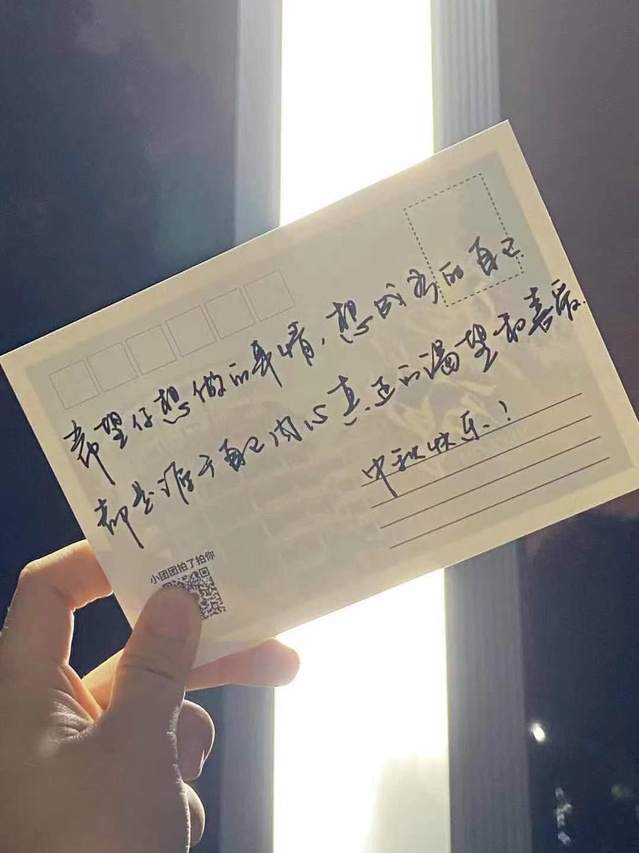 希望你想做的事情，想成为的自己
都是源于自己内心真正的渴望和喜爱.
中秋快乐！
小团团拍了拍你